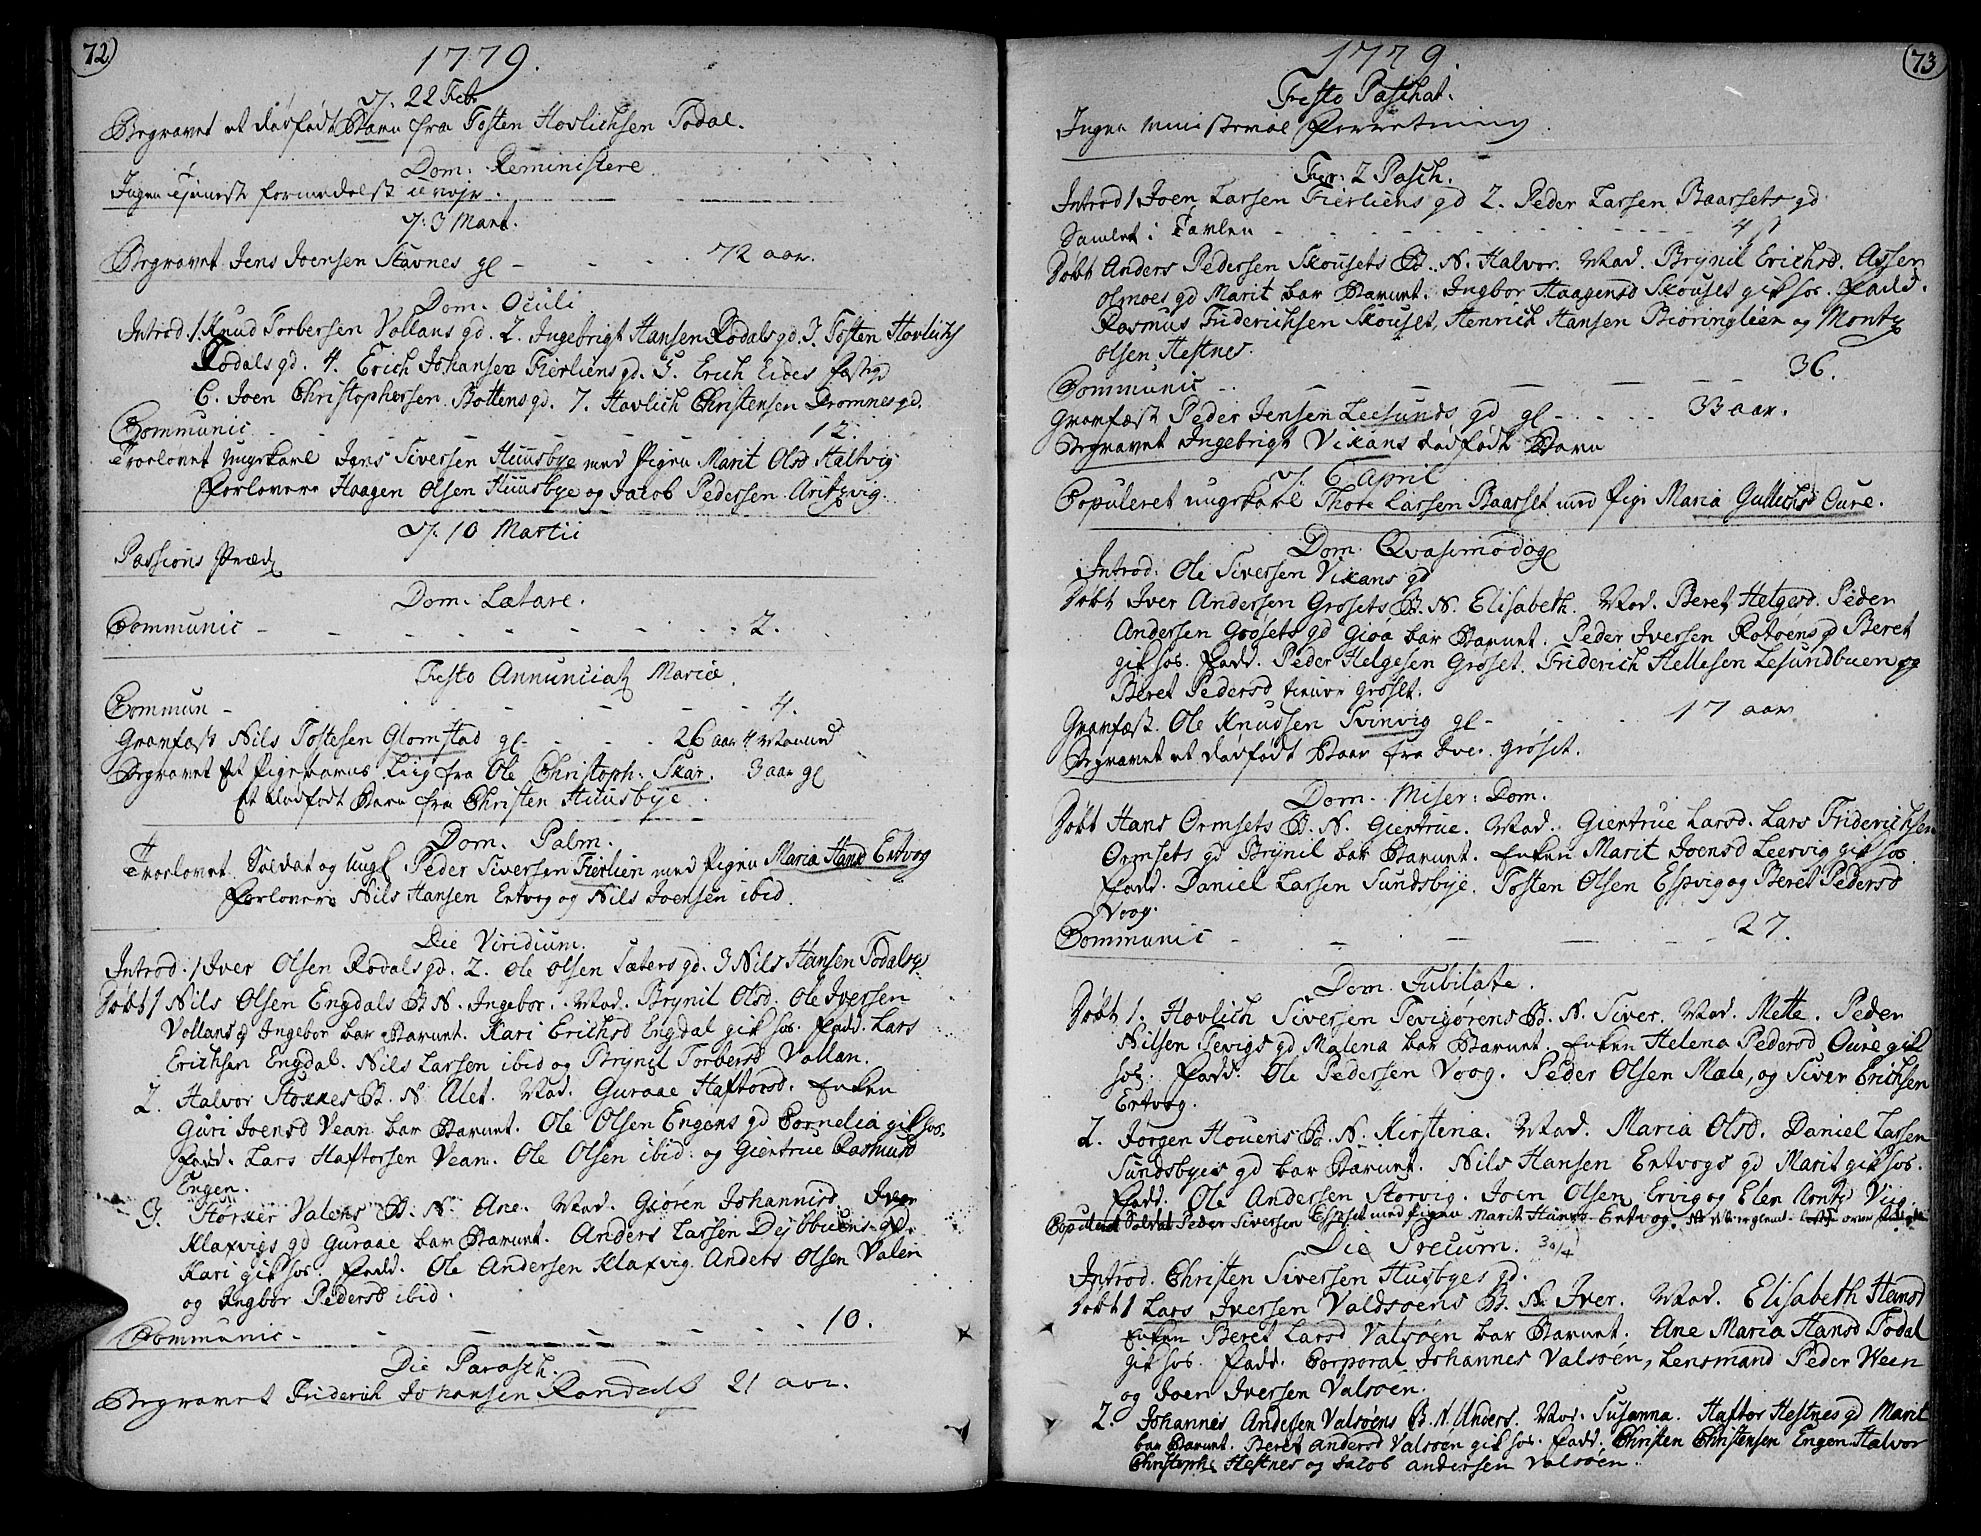 72
1779.
d. 22 Febr
Begravet et dødfødt Barn fra Tosten Hovlichsen Todal.
Dom: Reministere.
Ingen Tjeneste formedelst uvejr.
d: 3 Mart.
Begravet Jens Joensen Stavnes gl - - - - 72 aar.
Dom. Oculi
Introd. 1. Knud Torbersen Vollans gd. 2. Ingebrigt Hansen Rodals gd. 3. Tosten Hovlichs
Todals gd. 4. Erich Johansen Fierliens gd. 5. Erich Eides
6. Joen Christophersen Bottens gd. 7. Hovlich Christensen Dromnes gd.
Communic - - - - - - 12.
Troelovet ungkarl Jens Siversen Huusbye med Pigen Marit Olsd Haltvig
Forlovere Haagen Olsen Huusbye og Jacob Pedersen Aritzvig.
d. 10 Martii
Passions Præd
Dom. Lætare.
Communic - - - - - - - - 2.
Festo Annunciat Mariæ.
Commun - - - - - - 4.
Gravfæst Nils Tostesen Glomstad gl - - - 26 aar 4 Maaned
Begravet Et Pigebarns Liig fra Ole Christoph: Skar. 3 aar gl
Et dødfødt Barn fra Christen Huusbye.
Dom. Palm.
Troelovet Soldat og Ungk Peder Siversen Fierlien med Pigen Maria Hansd Ertvog
Forlovere Nils Hansen Ertvog og Nils Joensen ibid.
Die Viridium.
Introd: 1 Iver Olsen Rodals gd. 2. Ole Olsen Sæters gd. 3 Nils Hansen Todals g
Døbt 1 Nils Olsen Engdals B. N. Ingebor. Mod. Brynil Olsd. Ole Iversen
Vollans g Ingebor bar Barnet. Kari Erichsd Engdal gik hos. Fadd. Lars
Erichsen Engdal. Nils Larsen ibid og Brynil Torbersd Vollan.
2. Halvor Stokkes B. N. Alet. Mod. Guraae Haftorsd. Enken
Guri Joensd Vean bar Barnet. Ole Olsen Engens gd Cornelia gik hos.
Fadd. Lars Haftorsen Vean. Ole Olsen ibid. og Giertrue Rasmusd
Engen.
3. Størker Valens B. N. Ane. Mod. Giøren Johannisd. Iver
Klaxvigs gd Guraae bar Barnet. Anders Larsen Deybbuens gd
Kari gik hos. Fadd. Ole Andersen Klaxvig. Anders Olsen Valen
og Ingbor Pedersd ibid.
Communic - - - - - - - 10.
Die Parasch.
Begravet Friderich Johansen Rondals 21 aar.
73
1779.
Festo Paschat.
Ingen Ministerial Forretning.
Fer: 2 Pasch.
Introd 1 Joen Larsen Fierliens gd 2. Peder Larsen Baarsets gd
Samlet i Tavlen - - - - - - - - 4
Døbt Anders Pedersen Skousets B. N. Halvor. Mod. Brynil Erichsd. Assen
Olmoes gd Marit bar Barnet. Ingbor Haagensd Skouset gik hos. Fadd.
Rasmus Friderichsen Skouset, Henrich Hansen Bioringlien og Montz
Olsen Hestnes.
Communic - - - - - - - 36.
Gravfæst Peder Jensen Leesunds gd gl - - - 33 aar.
Begravet Ingebrigt Vikans dødfødt Barn
d. 6 April
Copuleret ungkarl Thore Larsen Baarset med Pige Maria Gullichsd Oure.
Dom. Qvasimodog
Introd: Ole Siversen Vikans gd
Døbt Iver Andersen Grøsets B. N. Elisabeth. Mod. Beret Helgesd. Peder
Andersen Grøsets gd Gioa bar Barnet. Peder Iversen Rotøens gd Beret
gik hos. Fadd. Peder Helgesen Grøset. Friderich Hellesen Lesundbuen og
Beret Pedersd Grøset.
Gravfæst. Ole Knudsen Svinvig gl - - 17 aar
Begravet et dødfødt Baar fra Iver Grøset.
Dom. Miser: Dom.
Døbt Hans Ormsets B. N. Giertrue. Mod. Giertrue Larsd. Lars Friderichsen
Ormsets gd Brynil bar Barnet. Enken Marit Joensd Leervig gik hos.
Fadd. Daniel Larsen Sundsbye. Tosten Olsen Espvig og Beret Pedersd
Voog.
Communic - - - - - 27.
Dom. Jubilate.
Døbt 1. Hovlich Siversen Tevigørens B. N. Siver. Mod. Mette. Peder
Nilsen Tevigs gd Malena bar Barnet. Enken Helena Pedersd Oure gik
hos. Fadd. Ole Pedersen Voog. Peder Olsen Mæle, og Siver Erichsen
Ertvog.
2. Jørgen Houens B. N. Kirstena. Mod. Maria Olsd. Daniel Larsen
Sundsbyes gd bar Barnet. Nils Hansen Ertvogs gd Marit gik hos.
Fadd. Ole Andersen Storvig. Joen Olsen Ervig og Elen Montzd Viig.
Copuleret Soldat Peder Siversen Espset med Pigen Marit Hansd Ertvog.
Die Precum. 30/4
Introd. Christen Siversen Husbyes gd.
Døbt 1 Lars Iversen Valdsøens B. N. Iver. Mod. Elisabeth Hansd
Enken Beret Larsd Valsøen bar Barnet. Ane Maria Hansd Todal
gik hos. Fadd. Corporal Johannes Valsøen, Lensmand Peder Ween
og Joen Iversen Valsøen.
2. Johannes Andersen Valsøens B. N. Anders. Mod. Susanna. Haftor Hestnes gd Marit
bar Barnet. Beret Andersd Valsøen gik hos. Fadd. Christen Christensen Engen. Halvor
Christophs Hestnes og Jacob Andersen Valsøen.